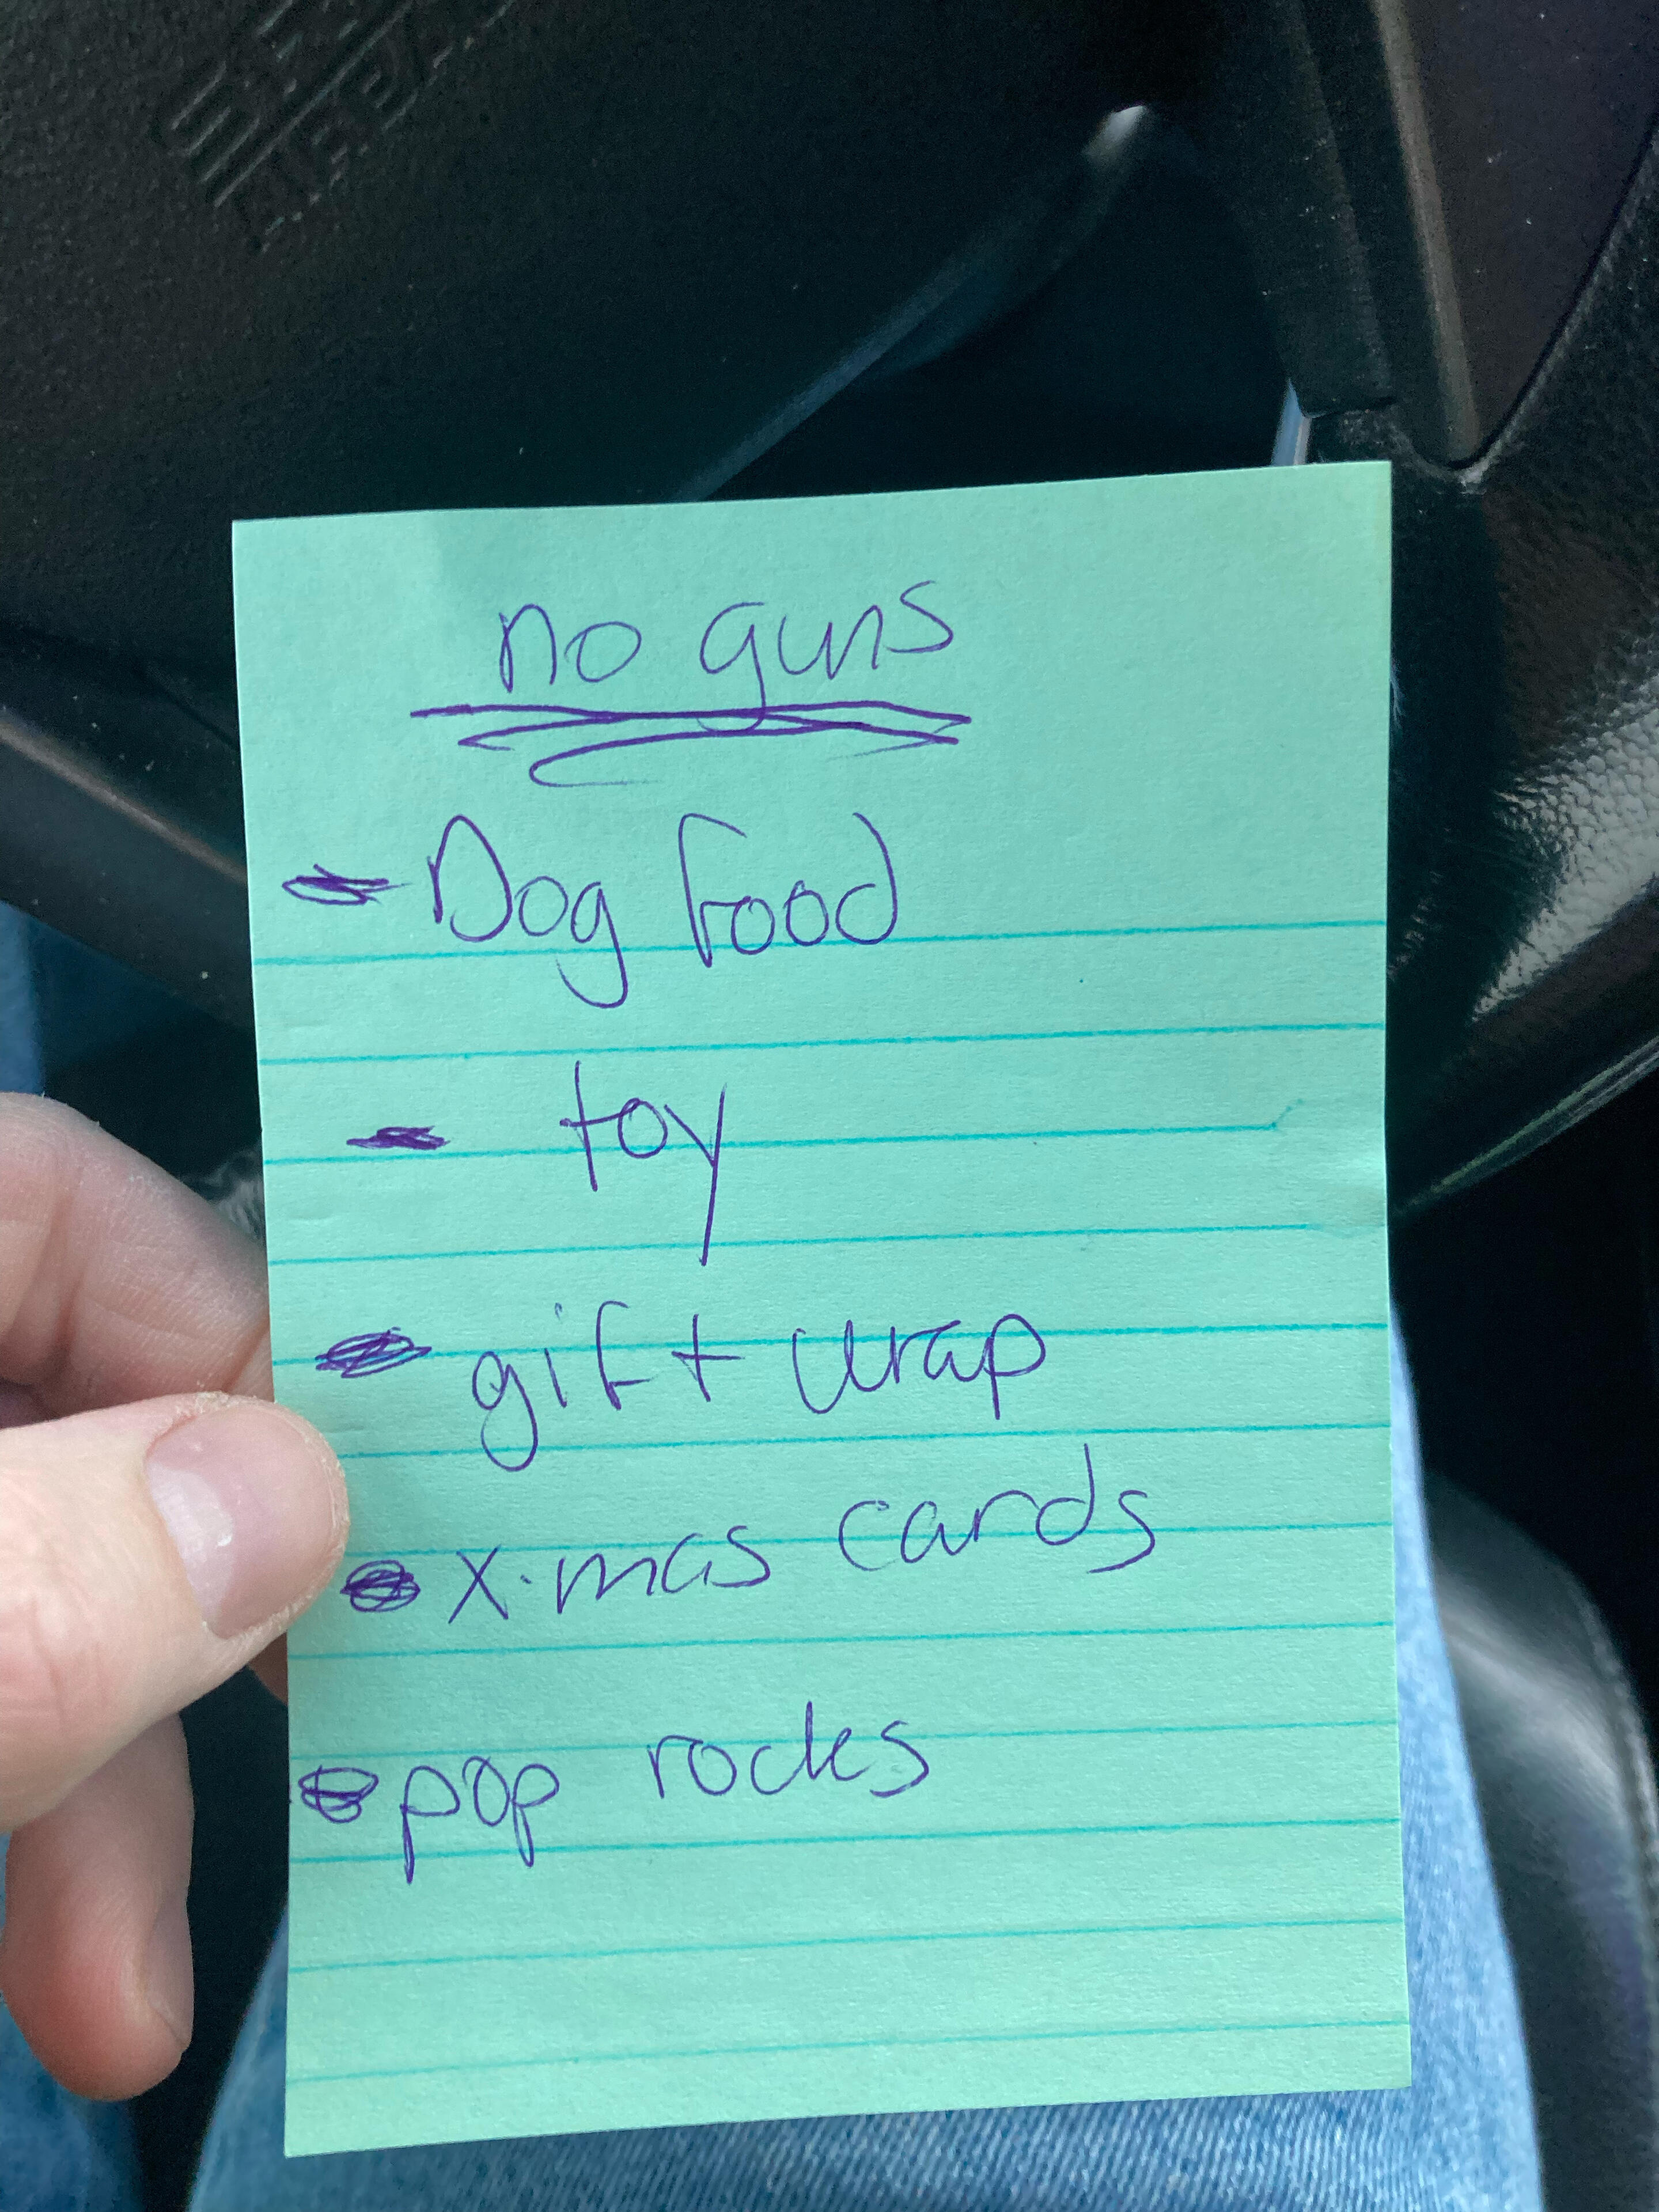 no guns
- Dog food
- toy
- gift wrap
- x-mas cards
- pop rocks